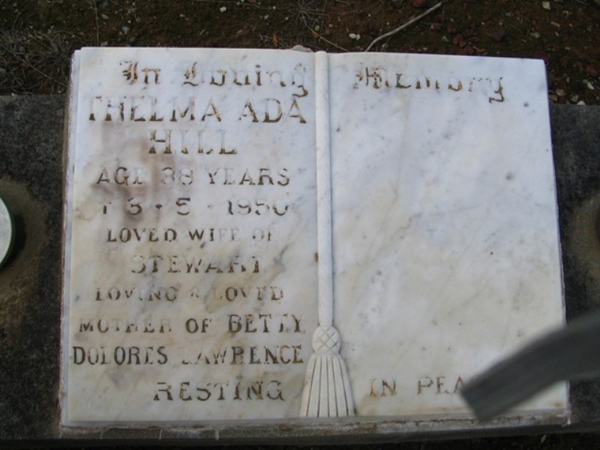 In Loving Memory
THELMA ADA
HILL
AGE 38 YEARS
3 - 5 - 1950
LOVED WIFE OF
STEWART
LOVING & LOVED
MOTHER OF BETTY
DOLORES LAWRENCE
RESTING IN PEA